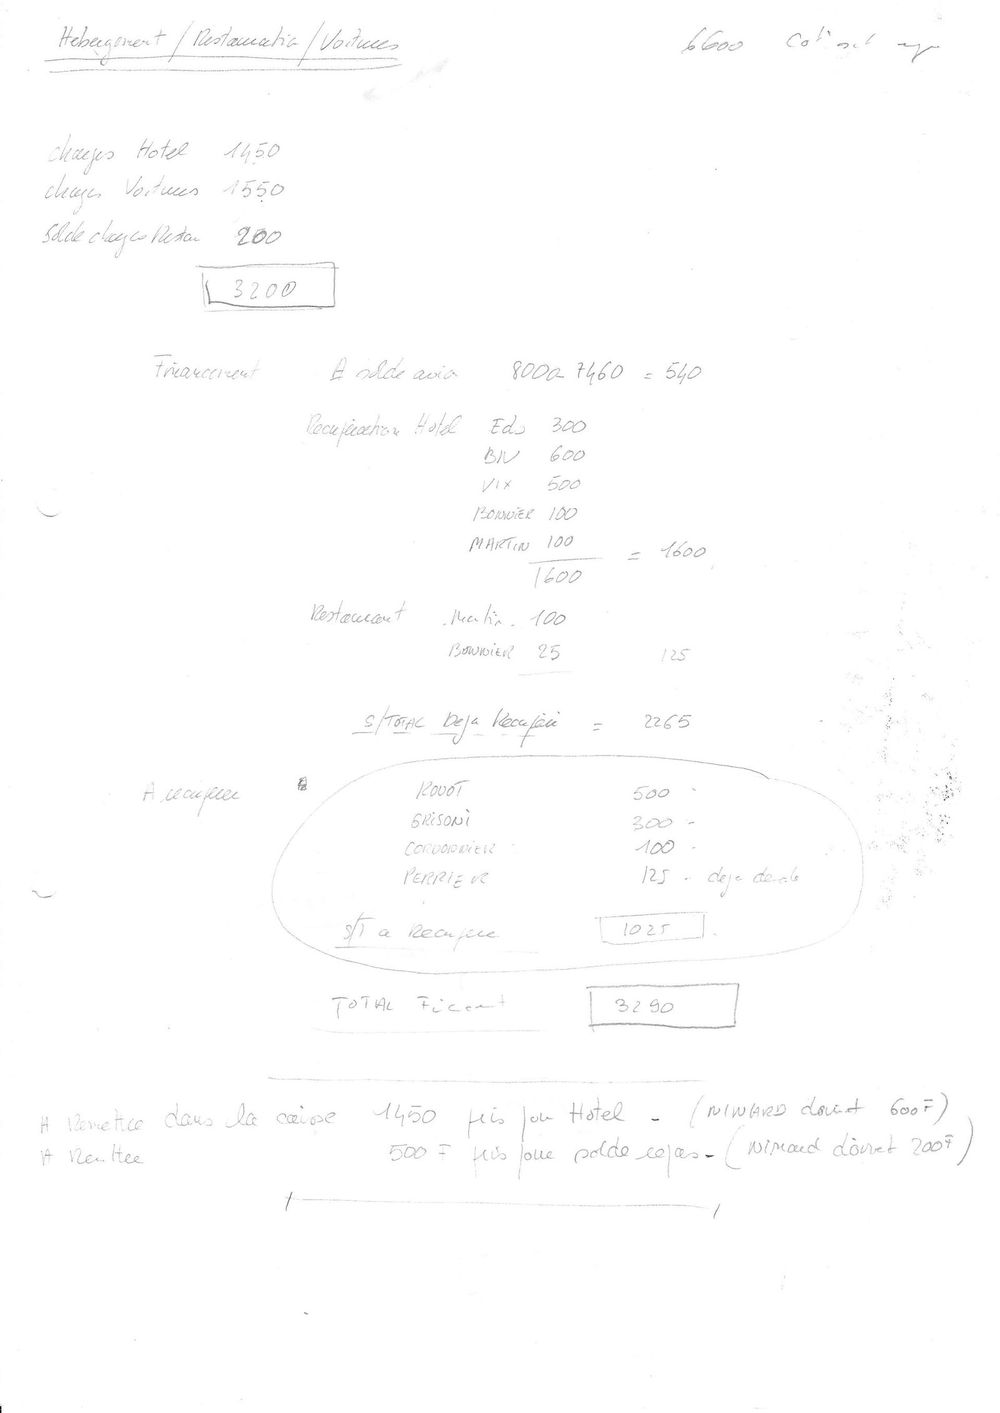 Hebergement / Restauration / Voitures
6600
charges Hotel 1450
charges Voitures 1550
Solde charges Restau 200
3200
Financement A solde avion 8000 - 7460 = 540
Recuperation Hotel Edo 300
BIV 600
VIX 500
BONNIER 100
MARTIN 100 = 1600
1600
Restaurant Martin 100
BONNIER 25 125
S/TOTAL Deja Recupéré = 2265
A recuperer ROUOT 500
GRISONI 300 -
CORDONNIER 100
PERRIER 125 - deja
S/T a Recuperer 1025
TOTAL 3290
A Remettre dans la caisse 1450 pris pour Hotel - (NINARD doivent 600F)
A Remttre 500 F pris pour solde repas - (NINARD doivent 200F)